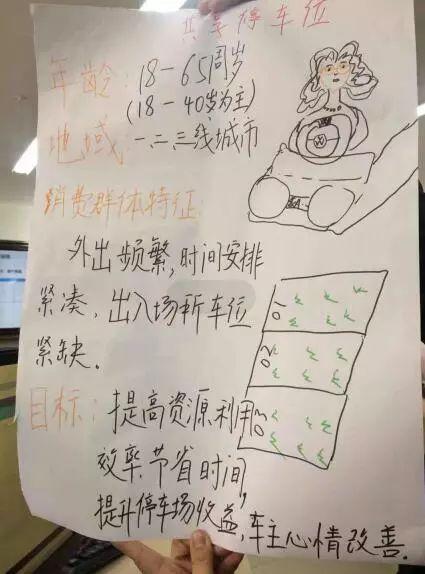 共享停车位
年龄：18－65周岁
（18－40岁为主）
地域：一、二、三线城市
消费群体特征：
外出频繁，时间安排
紧凑，出入场所车位
紧缺．
01
02
03
目标：提高资源利用
效率，节省时间，
提升停车场收益，车主心情改善．